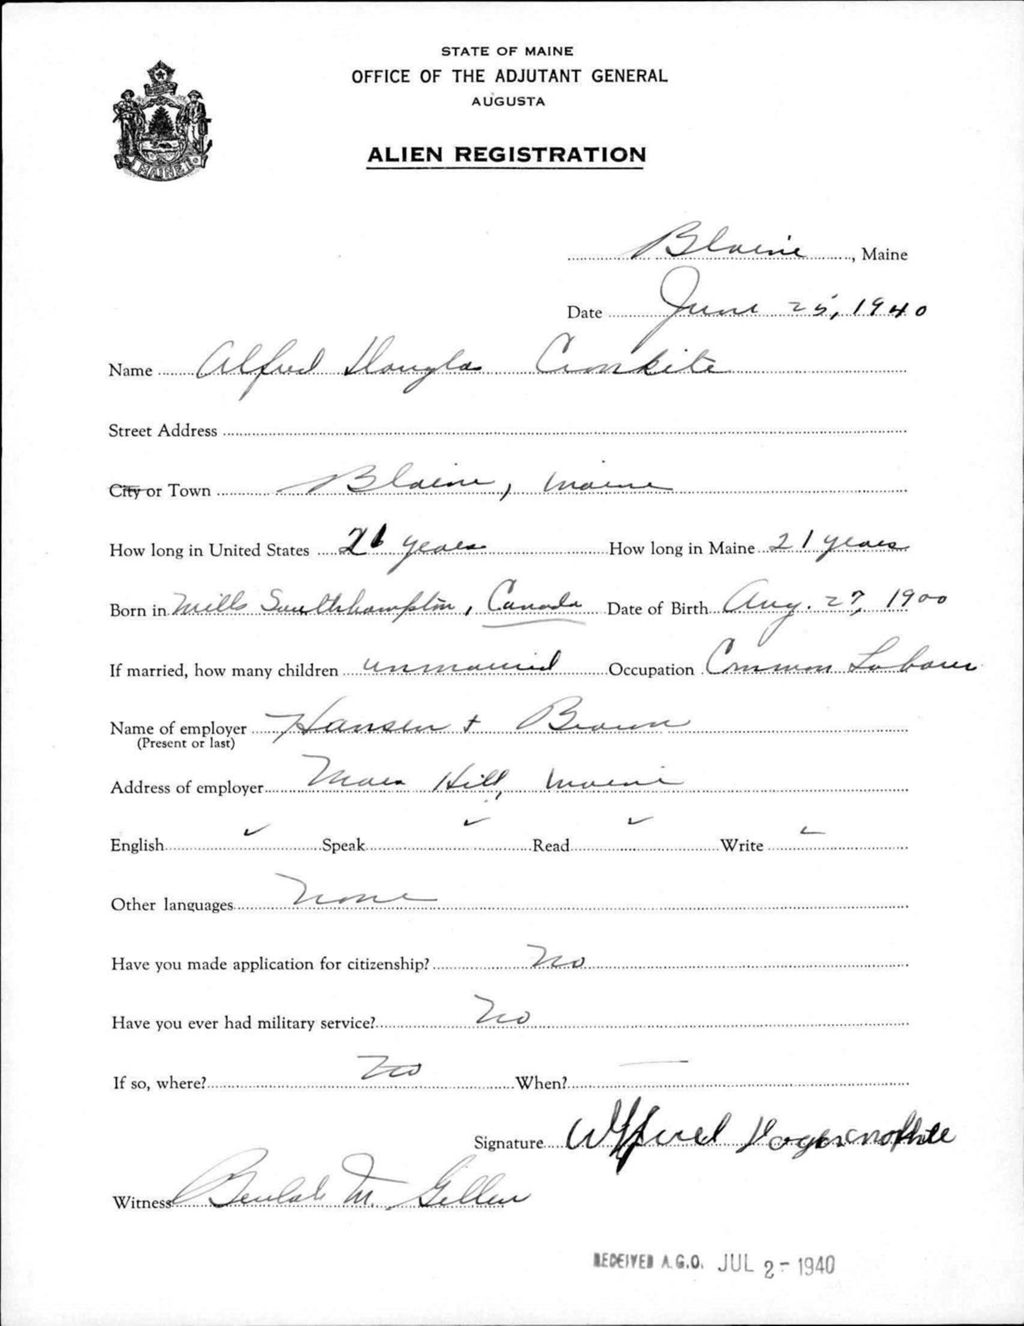 STATE OF MAINE
OFFICE OF THE ADJUTANT GENERAL
AUGUSTA
ALIEN REGISTRATION
MAINE
Blaine, Maine
Date June 25, 1940
Name Alfred Douglas Cronkite
Street Address
City or Town Blaine, Maine
How long in United States 21 years How long in Maine 21 years
Born in Mills Southhampton, Canada Date of Birth Aug. 27, 1900
If married, how many children unmarried Occupation Common Laborer
Name of employer Hansen + Brown
(Present or last)
Address of employer Mars Hill, Maine
English ✓ Speak ✓ Read ✓ Write ✓
Other languages None
Have you made application for citizenship? No
Have you ever had military service? No
If so, where? No When? —
Signature Alfred
Witness Beulah M. Gellen
RECEIVED A.G.O. JUL 2 - 1940